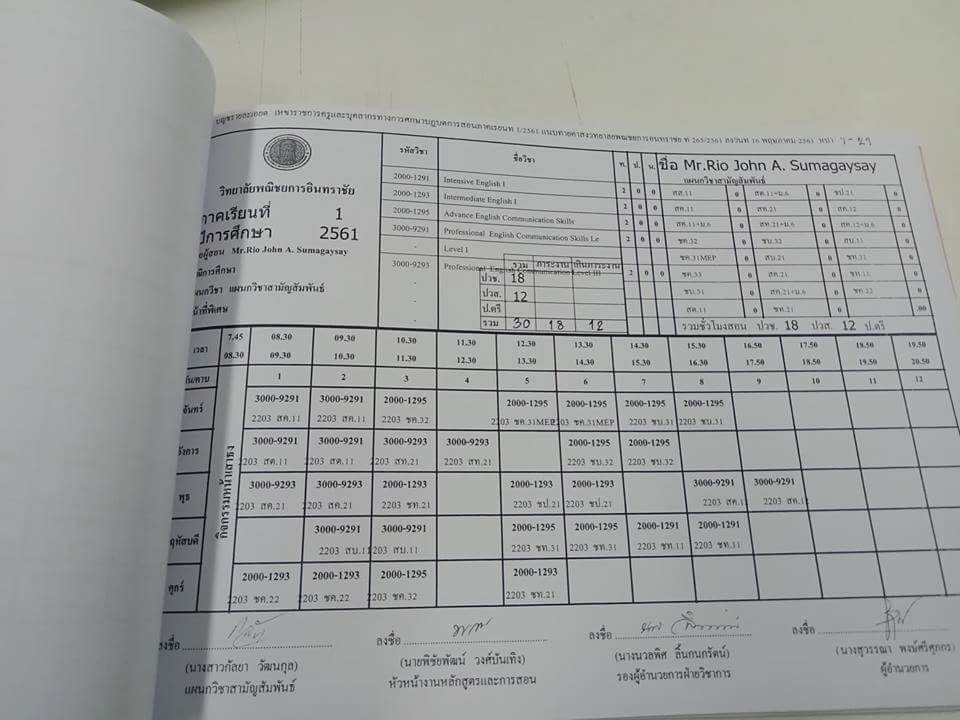 บัญชีรายละเอียด ให้ข้าราชการครูและบุคลากรทางการศึกษาปฏิบัติการสอนภาคเรียนที่ 1/2561 แนบท้ายคำสั่งวิทยาลัยพณิชยการอินทราชัย ที่ 263/2561 ลงวันที่ 16 พฤษภาคม 2561 หน้า
วิทยาลัยพณิชยการอินทราชัย
ภาคเรียนที่ 1
ปีการศึกษา 2561
Mr.Rio John A. Sumagaysay
แผนกวิชา แผนกวิชาสามัญสัมพันธ์
รหัสวิชา ชื่อวิชา ท. ป. น.
2000-1291 Intensive English I 2 0 0
2000-1293 Intermediate English I 2 0 0
2000-1295 Advance English Communication Skills 2 0 0
3000-9291 Professional English Communication Skills Le 2 0 0
- Level I
3000-9293 Professional English Communication Level III 2 0 0
รวม ภาระงาน เกินภาระงาน
ปวช. 18
ปวส. 12
ป.ตรี
รวม 30 18 12
ชื่อ Mr.Rio John A. Sumagaysay
แผนกวิชาสามัญสัมพันธ์
สส.11 0 สค.11+ม.6 0 ชป.21 0
สค.11 0 สท.21 0 สค.12 0
สค.11+ม.6 0 สท.21+ม.6 0 สค.12+ม.6 0
ชค.32 0 ชบ.32 0 สบ.11 0
ชค.31MEP 0 สบ.21 0 ชท.31 0
ชค.33 0 สค.21 0 ชท.11 0
ชบ.31 0 สค.21+ม.6 0 ชค.22 0
สค.11 0 ชท.21 0 .00
รวมชั่วโมงสอน ปวช. 18 ปวส. 12 ป.ตรี
เวลา 7.45 08.30 09.30 10.30 11.30 12.30 13.30 14.30 15.30 16.50 17.50 18.50 19.50
08.30 09.30 10.30 11.30 12.30 13.30 14.30 15.30 16.30 17.50 18.50 19.50 20.50
วัน/คาบ 1 2 3 4 5 6 7 8 9 10 11 12
กิจกรรมหน้าเสาธง
จันทร์ 3000-9291 3000-9291 2000-1295 2000-1295 2000-1295 2000-1295 2000-1295
2203 สค.11 2203 สค.11 2203 ชค.32 2203 ชค.31MEP 2203 ชค.31MEP 2203 ชบ.31 2203 ชบ.31
อังคาร 3000-9291 3000-9291 3000-9293 3000-9293 2000-1295 2000-1295
2203 สค.11 2203 สค.11 2203 สท.21 2203 สท.21 2203 ชบ.32 2203 ชบ.32
พุธ 3000-9293 3000-9293 2000-1293 2000-1293 2000-1293 3000-9291 3000-9291
2203 สค.21 2203 สค.21 2203 ชท.21 2203 ชป.21 2203 ชป.21 2203 สค.1 2203 สค.1
พฤหัสบดี 3000-9291 3000-9291 2000-1295 2000-1295 2000-1291 2000-1291
2203 สบ.11 2203 สบ.11 2203 ชท.31 2203 ชท.31 2203 ชท.11 2203 ชท.11
ศุกร์ 2000-1293 2000-1293 2000-1295 2000-1293
2203 ชค.22 2203 ชค.22 2203 ชค.32 2203 ชท.21
ลงชื่อ ลงชื่อ ลงชื่อ ลงชื่อ
(นางสาวกัลยา วัฒนกุล) (นายพิชัยพัฒน์ วงศ์บันเทิง) (นางนวลพิศ ลิ้นกนกรัตน์) (นางสุวรรณา พงษ์ศรีศุภกร)
แผนกวิชาสามัญสัมพันธ์ หัวหน้างานหลักสูตรและการสอน รองผู้อำนวยการฝ่ายวิชาการ ผู้อำนวยการ